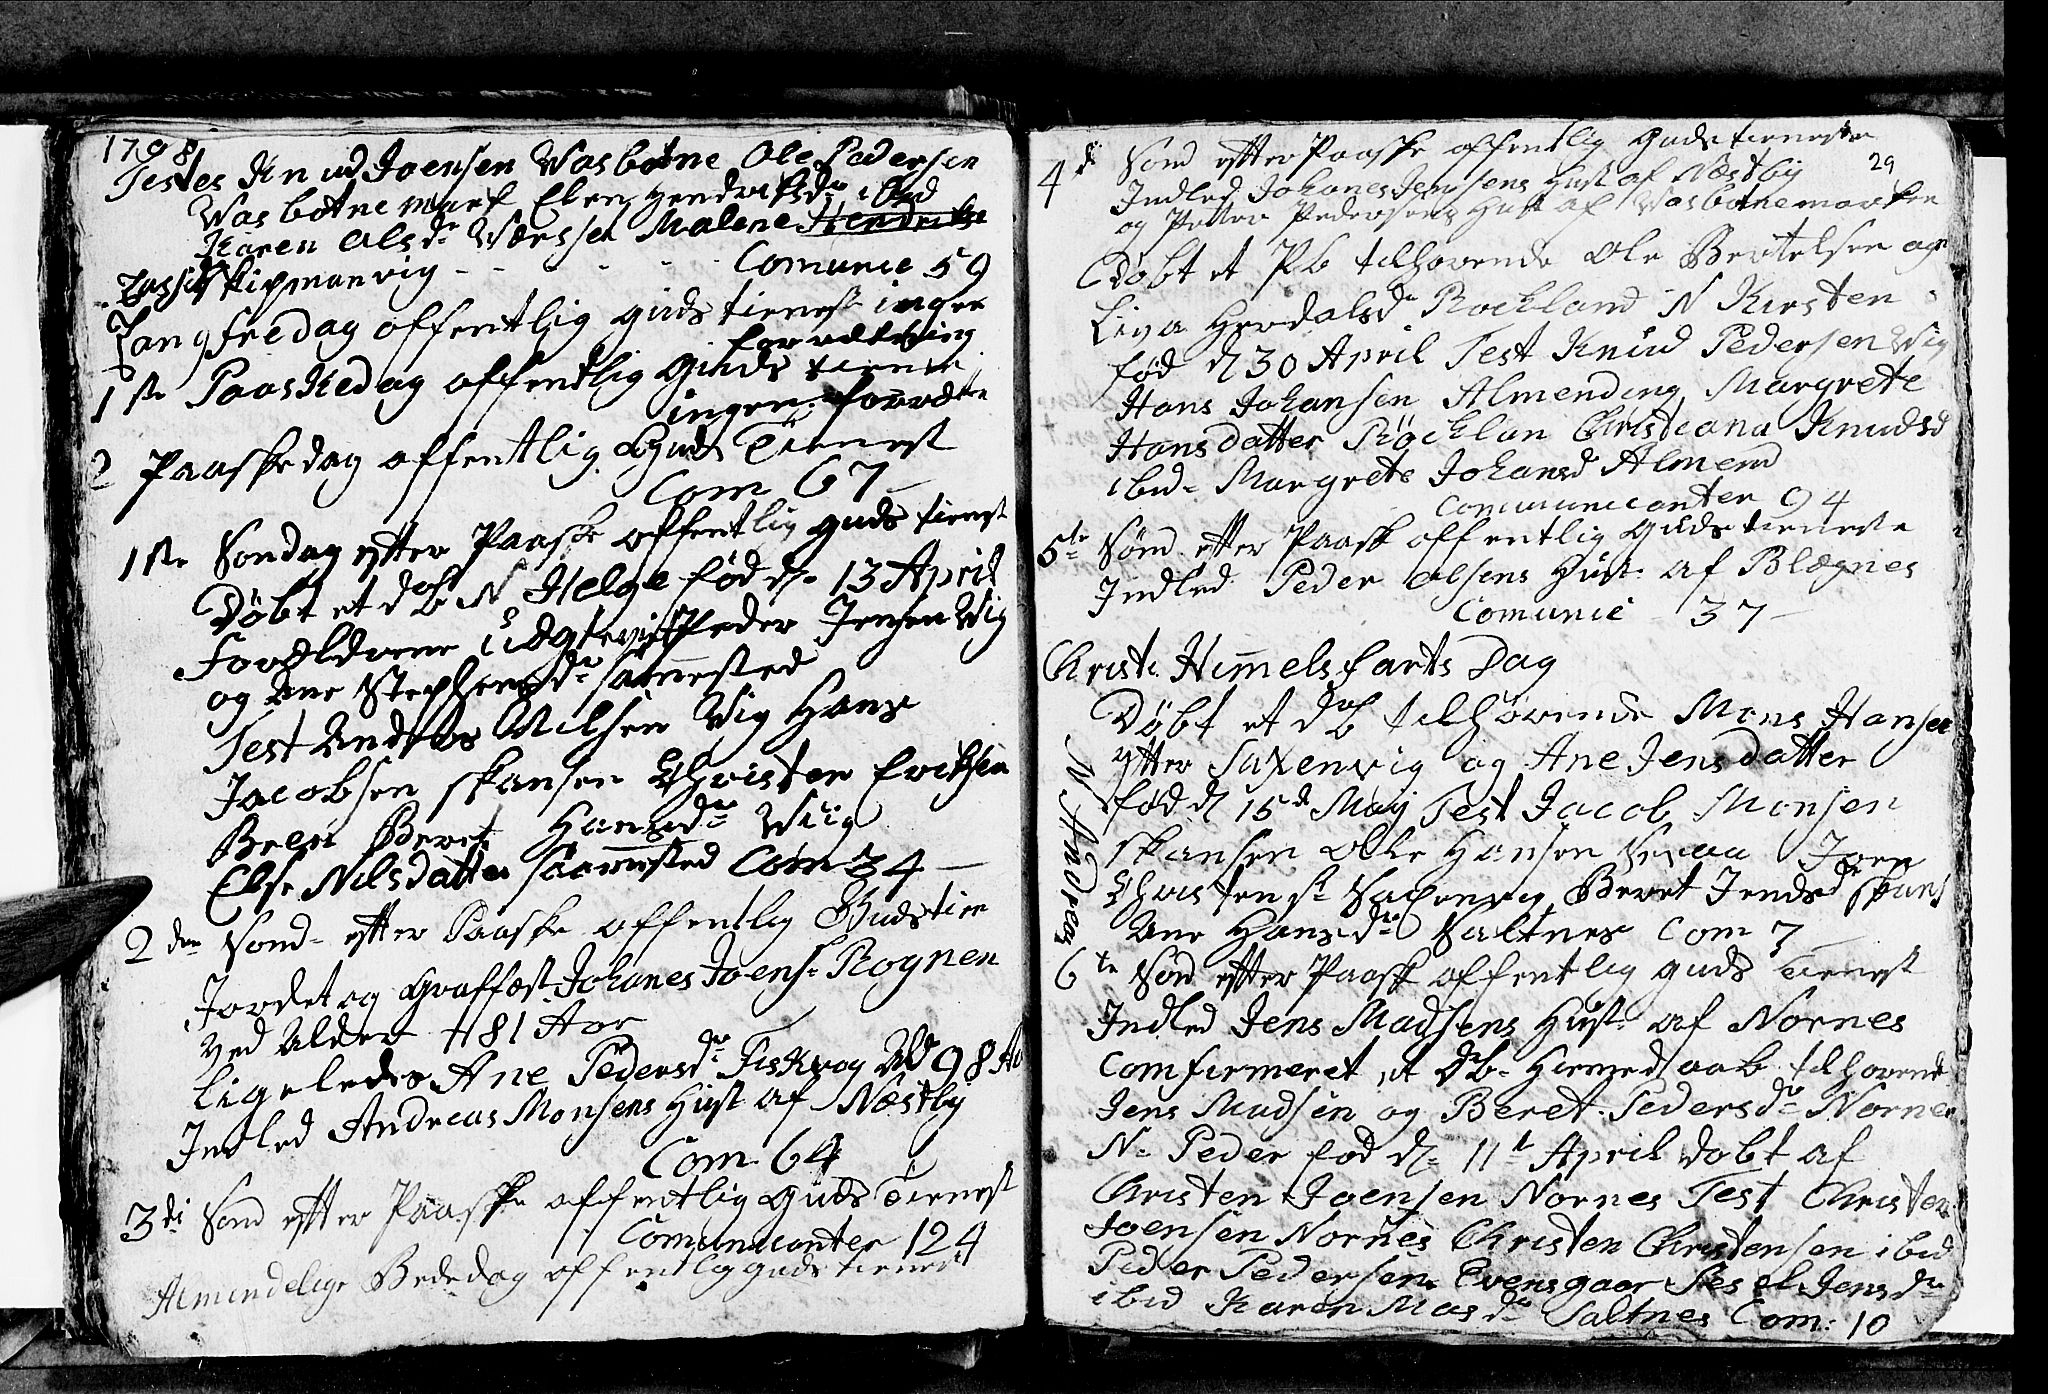 1798
Testes Knud Joensen Wasbotne Ole Pedersen
Wasbotnemark Elen Hendriksdr ibid
Karen Olsdr Wærssel Malene Hendrikse
Zassi Skipmanvig - - - - - Comunic 59
Langfredag offentlig Guds tienest ingen
forretning
1ste Paaskedag offentlig Guds tienest
ingen forrette
2 Paaskedag offentlig Guds Tienest
Com 67
1ste Søndag efter Paaske offentlig Guds tienest
Døbt et døb N Helge fød d. 13 April
Forældrene Peder Jensen Wig
og Ane Stephensdr sammested
Test Andreas Nilsen Wig Hans
Jacobsen Skansen Christen Erichsen
Beret Hansdr Wiig
Else Nilsdatter sammested Com 34
2den Sønd efter Paaske offentlig Gudstien
Jordet og Graffæst Johanes Joens. Rognen
ved Alder 81 Aar
Ligeledes Ane Pedersdr Fiskvog Ald 98 Aar
Indled Andreas Monsens Hust af Næstby
Com 64
3di Sønd efter Paaske offentlig Guds Tienest
Comunicanter 124
Almindelige Bededag offentlig Guds tienest
29
4de Sønd efter Paaske offentlig Guds tieneste
Indled Johanes Jensens Hust af Næstby
og Petter Pedersens Hust af Wasbotnemarken
Døbt et Pb tilhørende Ole Bertelsen og
Liva Herdalsdr Rockland N Kirsten
fød d 30 April Test Knud Pedersen Wig
Hans Johansen Almending Margrete
Hansdatter Røcklan Christiana Knudsd
ibid Margrete Johansd Almend
Comunicanter 94
5te Sønd efter Paask offentlig Guds tieneste
Indled Peder Olsens Hust. af Blægnes
Comunic 37
Christi Himmelsfarts Dag
Døbt et døb tilhørende Mons Hansen
ytter Saxenvig og Ane Jensdatter
fød d 15de Maij Test Jacob Monsen
N Andreas
Skansen Olle Hansen Joen
Christens. Saxenvig Beret Jensd Skans
Ane Hansdr Saltnes Com 7
6te Sønd efter Paask offentlig Guds Tienest
Indled Jens Madsens Hust. af Nornes
Comfirmeret et db. Hiemedaab tilhørend
Jens Madsen og Beret Pedersdr Nornes
N. Peder fød d. 11te April døbt af
Christen Joensen Nornes Test Christen
Joensen Nornes Christen Christensen ibid
Peder Pedersen Evensgaar Sesel Jensdr
ibid Karen Masdr Saltnes Com: 10